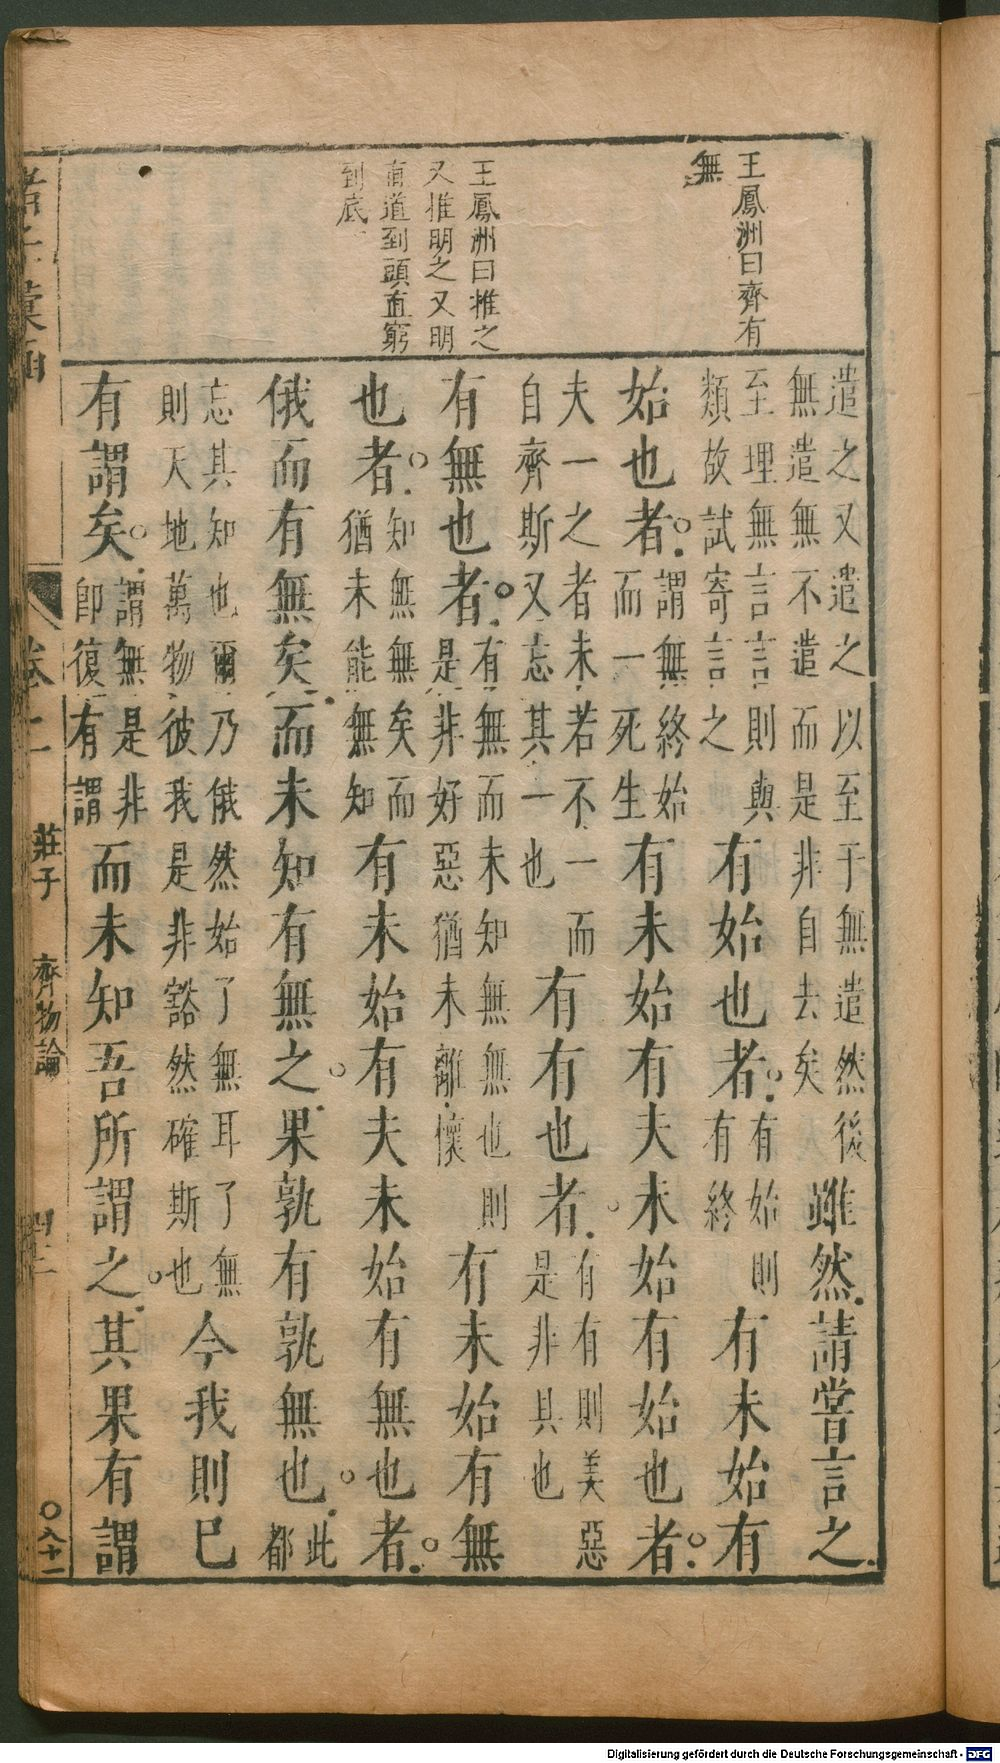 王鳳洲曰齊有
無
王鳳洲曰推之
又推明之又明
有道到頭直窮
到底
遣之又遣之以至于無遣然後
無遣無不遣而是非自去矣
雖然請嘗言之
至理無言言則與
類故試寄言之
有始也者
有始則
有終
有未始有
始也者
謂無終始
而一死生
有未始有夫未始有始也者
夫一之者未若不一而
自齊斯又忘其一也
有有也者
有有則美惡
是非具也
有無也者
有無而未知無無也則
是非好惡猶未離懷
有未始有無
也者
知無無矣而
猶未能無知
有未始有夫未始有無也者
俄而有無矣而未知有無之果孰有孰無也
此
都
忘其知也爾乃俄然始了無耳了無
則天地萬物彼我是非豁然確斯也
今我則已
有謂矣
謂無是非
即復有謂
而未知吾所謂之其果有謂
諸子彙函
卷二
莊子
齊物論
〇八十一
Digitalisierung gefördert durch die Deutsche Forschungsgemeinschaft - DFG